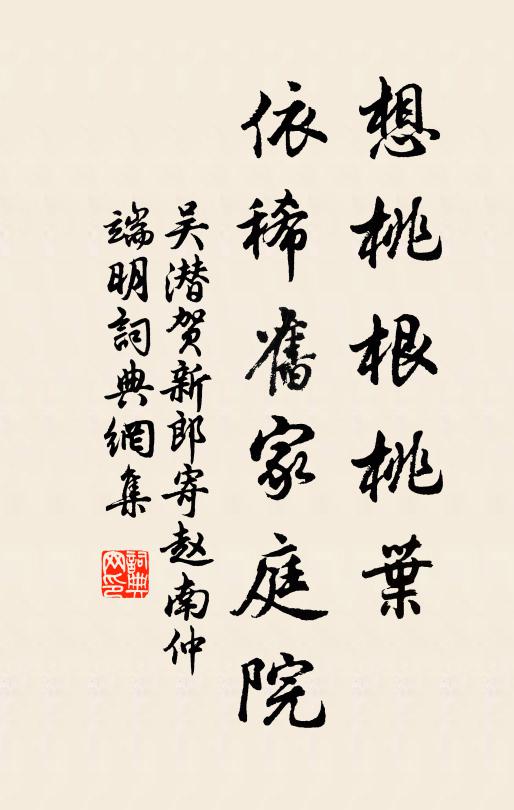 想桃根桃葉
依稀舊家庭院
吴潜贺新郎寄赵南仲
端明詞典網集
詞典
网印